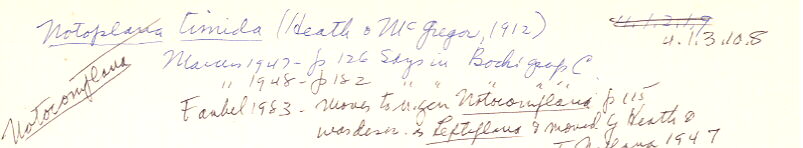 Notoplana timida (Heath & McGregor, 1912)
4.1.3.10.8
Notocomplana
Marcus 1947 - p 126 Says in Bock's group C.
" 1948 - p 182 " " " " "
Faubel 1983 - moves to n. gen Notocomplana p 115
was descr. as Leptoplana & moved by Heath &
Plana 1947